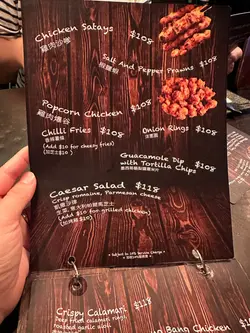 Chicken Satays $108
雞肉沙嗲
Salt And Pepper Prawns $108
椒鹽蝦
Popcorn Chicken $108
雞肉爆谷
Chilli Fries $108
香辣薯條
(Add $10 for cheesy fries)
(加芝士$10)
Onion Rings $108
洋蔥圈
Guacamole Dip
with Tortilla Chips $108
Caesar Salad $118
Crisp romaine, Parmesan cheese
凱撒沙律
生菜, 意大利帕爾馬芝士
(Add $10 for grilled chicken)
(加烤雞$10)
* Subject to 10% Service Charge *
Crispy Calamari $118
Deep fried calamari rings,
roasted garlic aioli
Bang Chicken